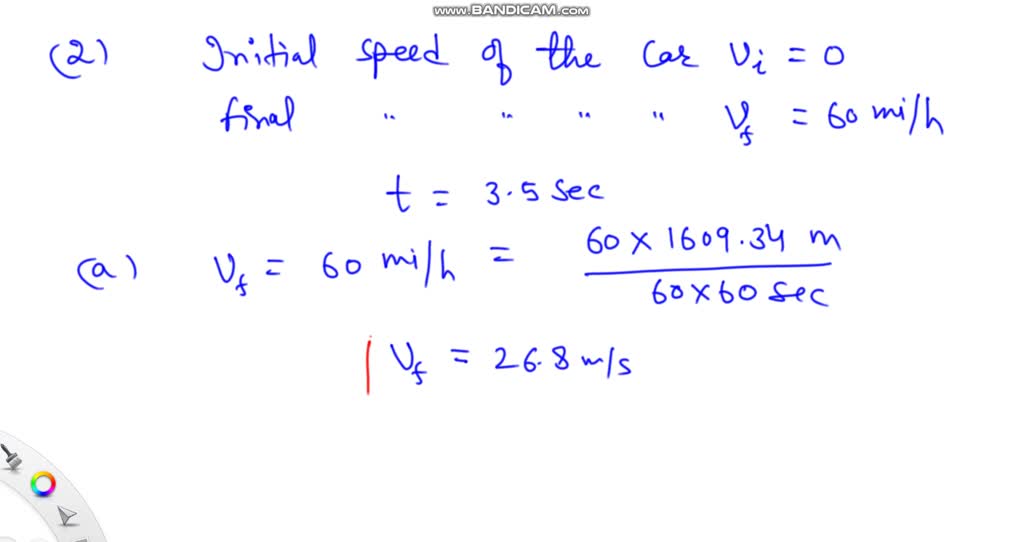 www.BANDICAM.com
(2) Initial speed of the car Vi = 0
final " " " " Vf = 60 mi/h
t = 3.5 sec
(a) Vf = 60 mi/h = 60 x 1609.34 m
60 x 60 sec
Vf = 26.8 m/s